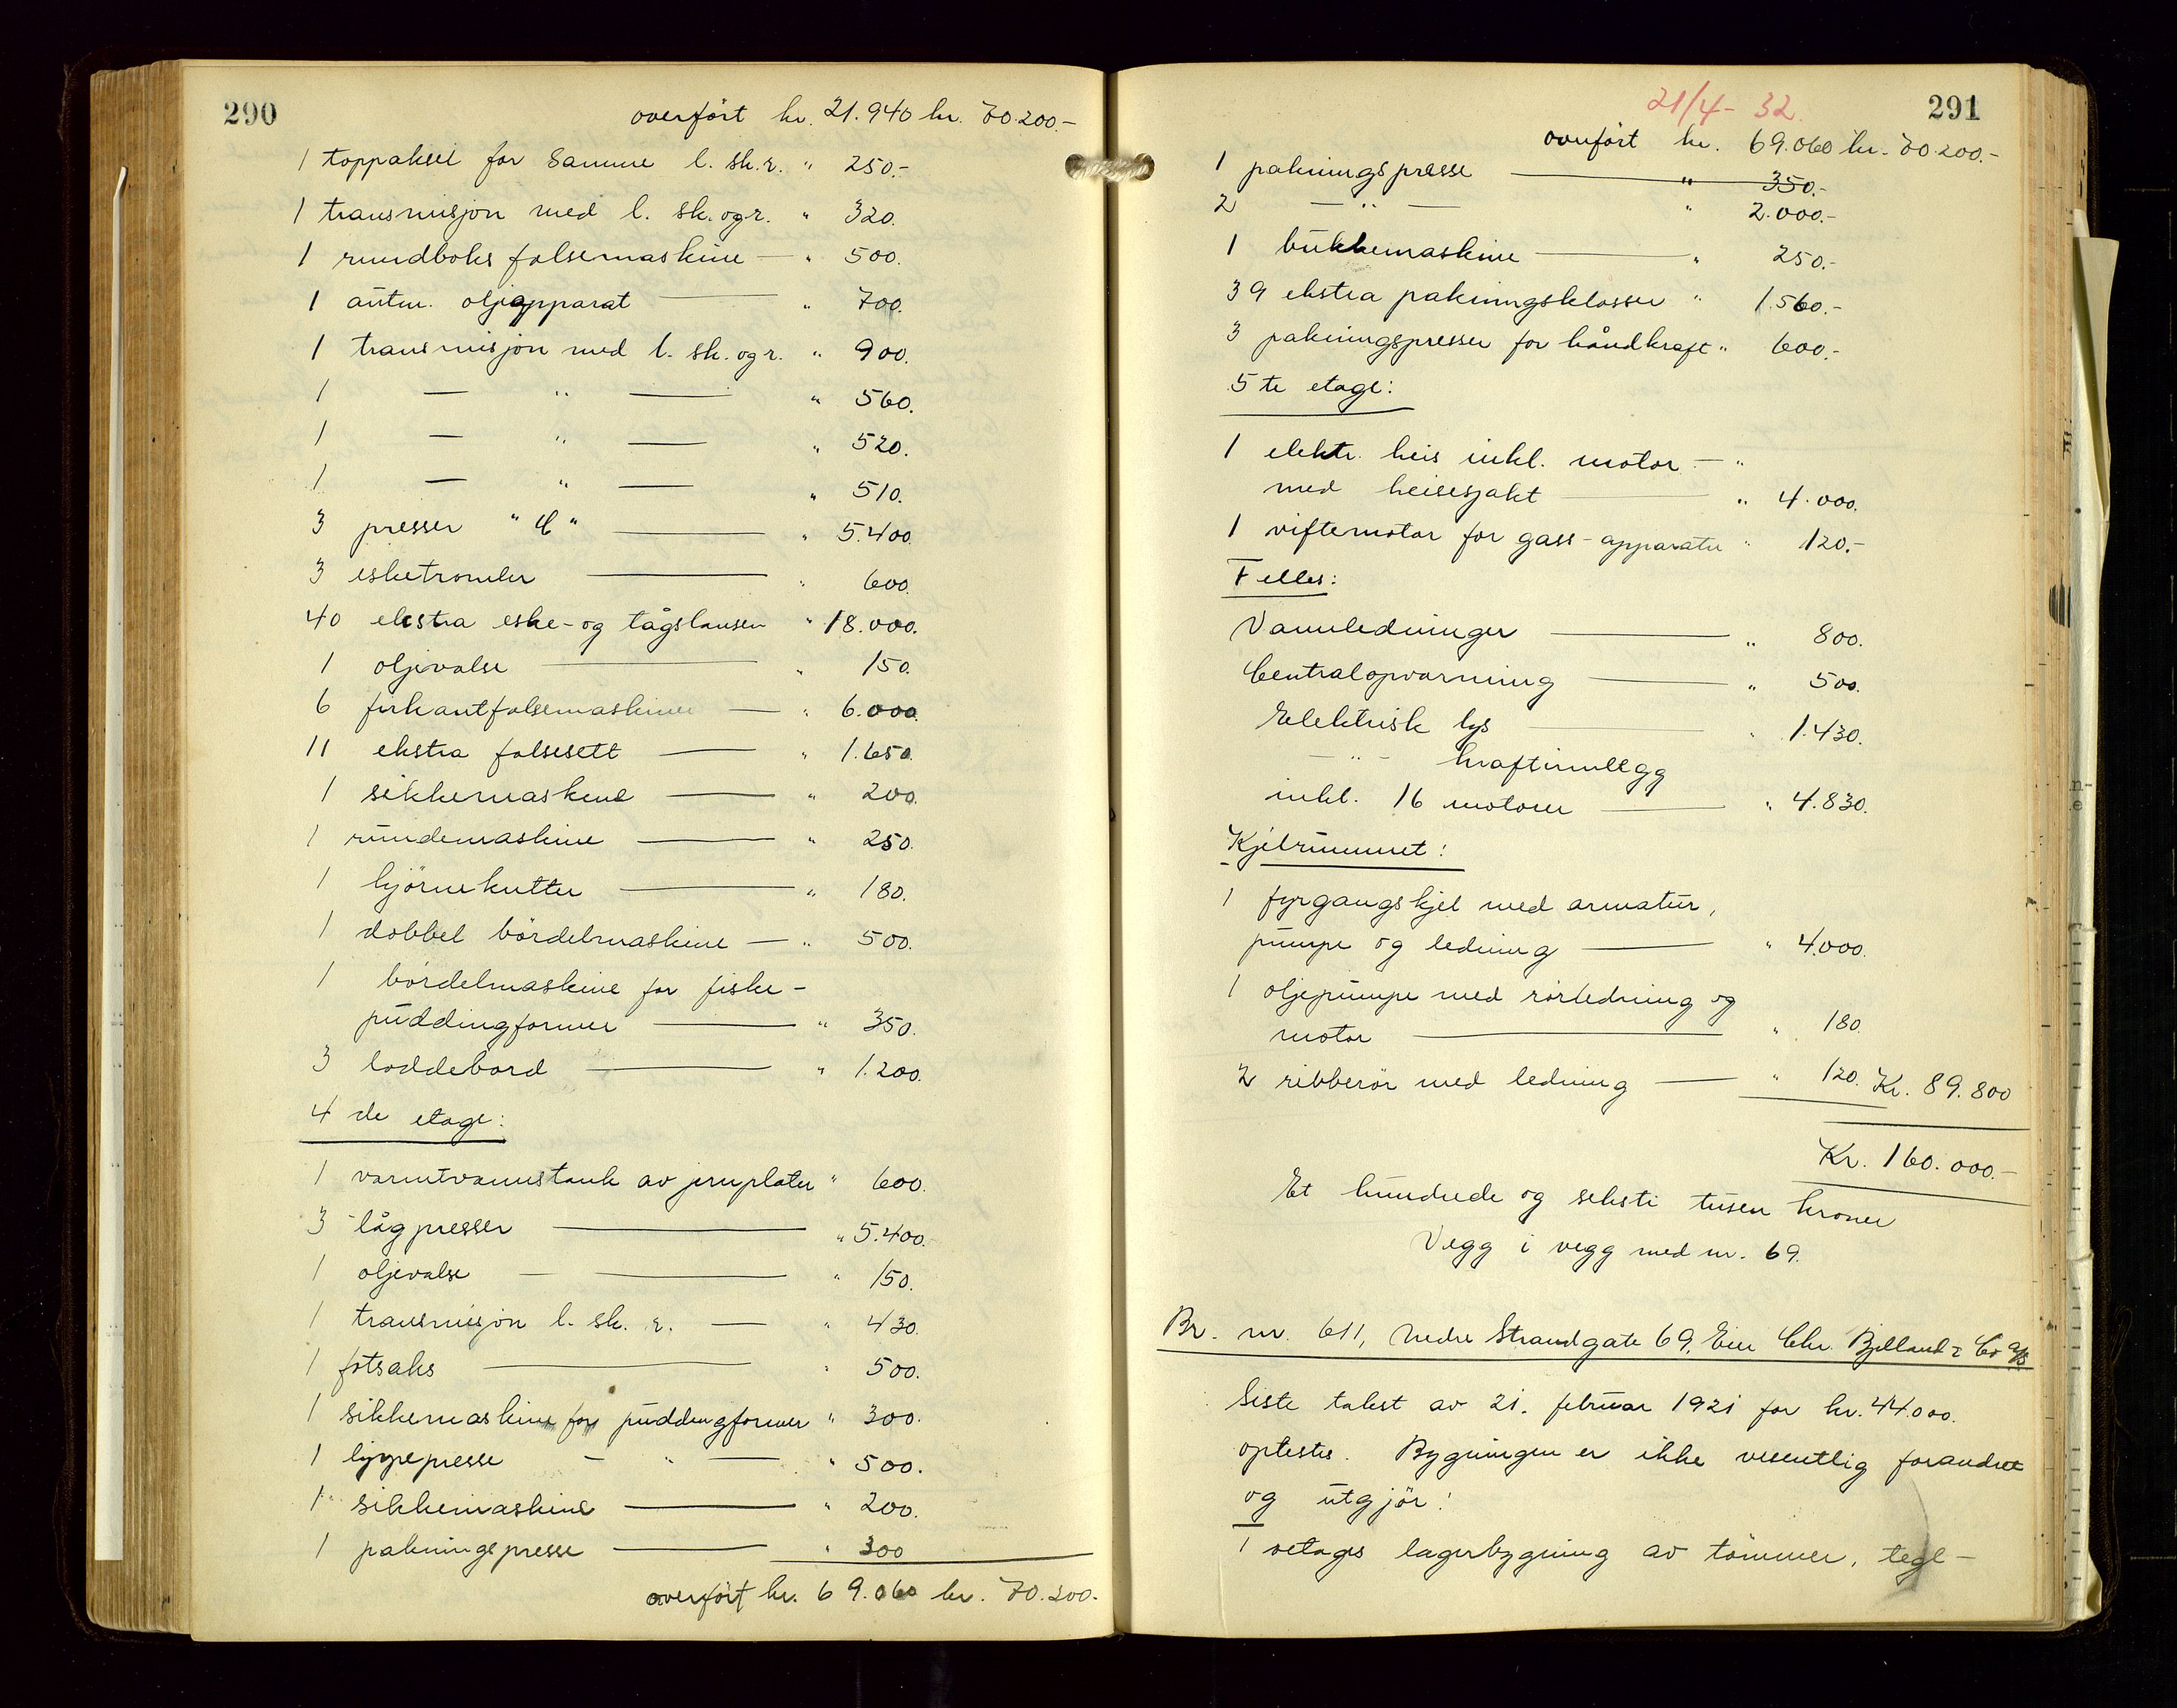 290
overført kr. 21.940 kr. 70.200.-
1 toppaksel for samme l. sk. r. " 250.-
1 transmisjon med l. sk. og r. " 320.
1 rundboks falsemaskine — " 500.
1 autm. oljeapparat — " 700.
1 transmisjon med l. sk. og r. " 900.
1 — " — " 560.
1 — " — " 520.
1 — " — " 510.
3 presser " — " 5.400.
3 esketromler — " 600.
40 ekstra eske- og lågstanser " 18.000.
1 oljevalse — " 150.
6 firkantfalsemaskiner — " 6.000.
11 ekstra falsesett — " 1.650.
1 sikkemaskine — " 200.
1 rundemaskine — " 250.
1 hjørnekutter — " 180.
1 dobbel børdelmaskine — " 500.
1 børdelmaskine for fiske-
puddingformer — " 350.
3 loddebord — " 1.200.
4 de etage:
1 varmtvannstank av jernplater " 600.
3 lågpresser — " 5.400.
1 oljevalse — " 150.
1 transmisjon l. sk. r. — " 430.
1 fotsaks — " 500.
1 sikkemaskine for puddingformer " 300.
1 lippepresse — " — " 500.
1 sikkemaskine — " 200.
1 pakningspresse — " 300
overført kr. 69.060 kr. 70.200.-
21/4 - 32.
291
overført kr. 69.060 kr. 70.200.-
1 pakningspresse — " 350.-
2 — " — " 2.000.-
1 bukkemaskine — " 250.-
39 ekstra pakningsklosser " 1.560.-
3 pakningspresser for håndkraft " 600.-
5 te etage:
1 elektr. heis inkl. motor — "
med heisesjakt — " 4.000.
1 viftemotor for gass-apparater " 120.-
Felles:
Vannledninger — " 800.
Centralopvarming — " 500.
Elektrisk lys — " 1.430.
— " — kraftinnlegg
inkl. 16 motorer — " 4.830.
Kjelrummet:
1 fyrgangskjel med armatur,
pumpe og ledning — " 4.000.
1 oljepumpe med rørledning og
motor — " 180.
2 ribberør med ledning — " 120. Kr. 89.800
Kr. 160.000.-
Et hundrede og seksti tusen kroner
Vegg i vegg med nr. 69.
Br. nr. 611, Nedre Strandgate 69, Eier Chr. Bjelland & Co a/s
Siste takst av 21. februar 1921 for kr. 44.000.
optestes. Bygningen er ikke vesentlig forandret
og utgjør:
1 etages lagerbygning av tømmer, tegl-